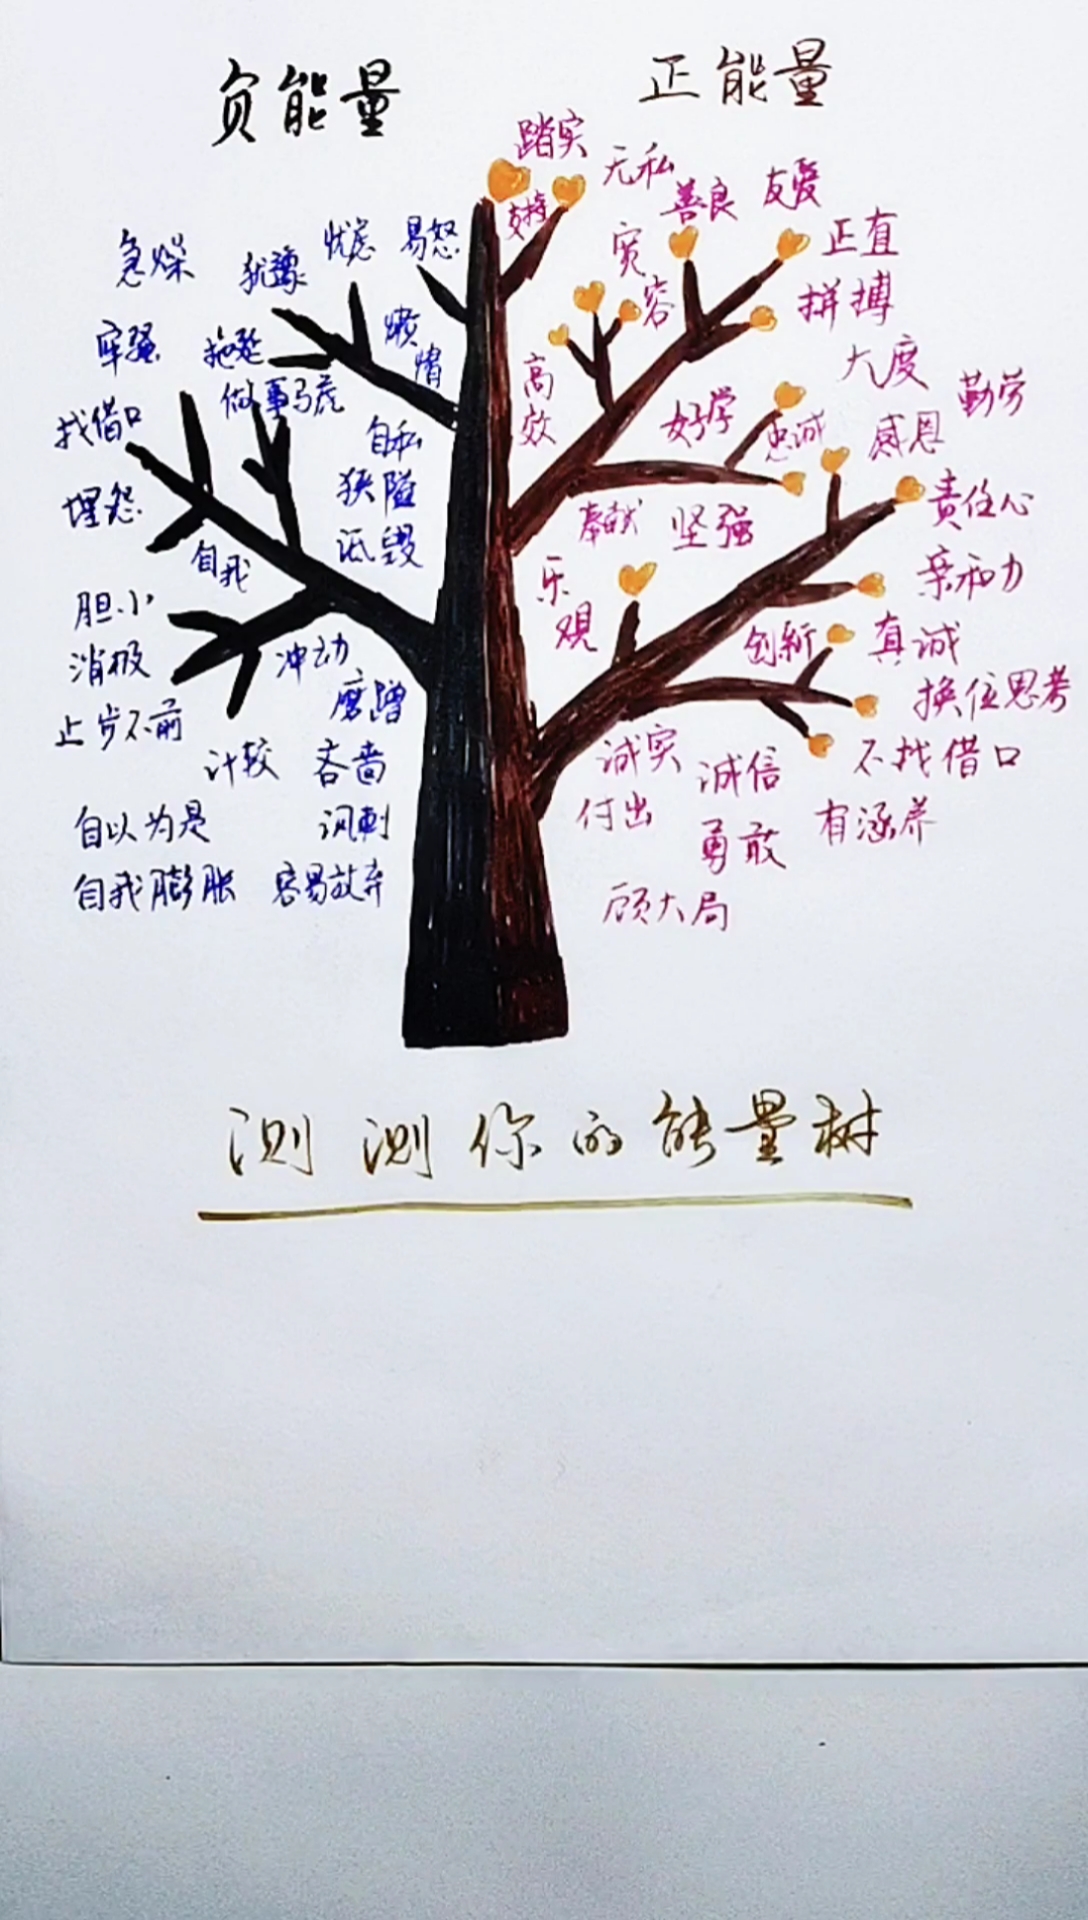 负能量
正能量
急燥
犹豫
忧虑
易怒
牢骚
拖延
懒惰
做事马虎
找借口
自私
埋怨
狭隘
诋毁
自我
胆小
消极
冲动
止步不前
磨蹭
计较
吝啬
自以为是
讽刺
自我膨胀
容易放弃
踏实
无私
支持
善良
友爱
宽容
正直
拼搏
高效
大度
勤劳
好学
忠诚
感恩
奉献
坚强
责任心
乐观
亲和力
创新
真诚
换位思考
诚实
诚信
不找借口
付出
勇敢
有涵养
顾大局
测测你的能量树